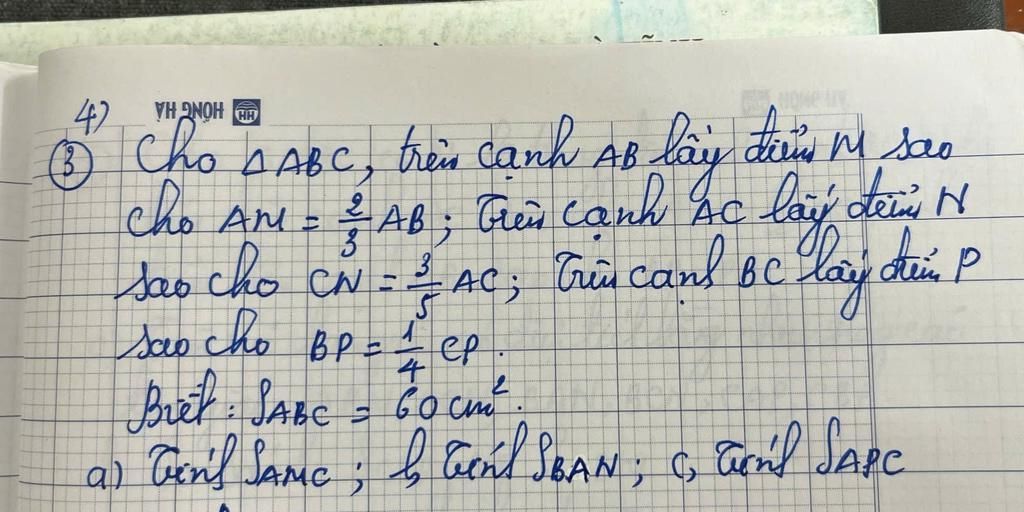 4)
HỒNG HÀ HH
③ Cho △ABC, trên cạnh AB lấy điểm M sao
cho AM = 2/3 AB; Trên cạnh AC lấy điểm N
sao cho CN = 3/5 AC; Trên cạnh BC lấy điểm P
sao cho BP = 1/4 CP.
Biết: SABC = 60 cm².
a) Tính SAMC; b, Tính SBAN; c, Tính SAPC